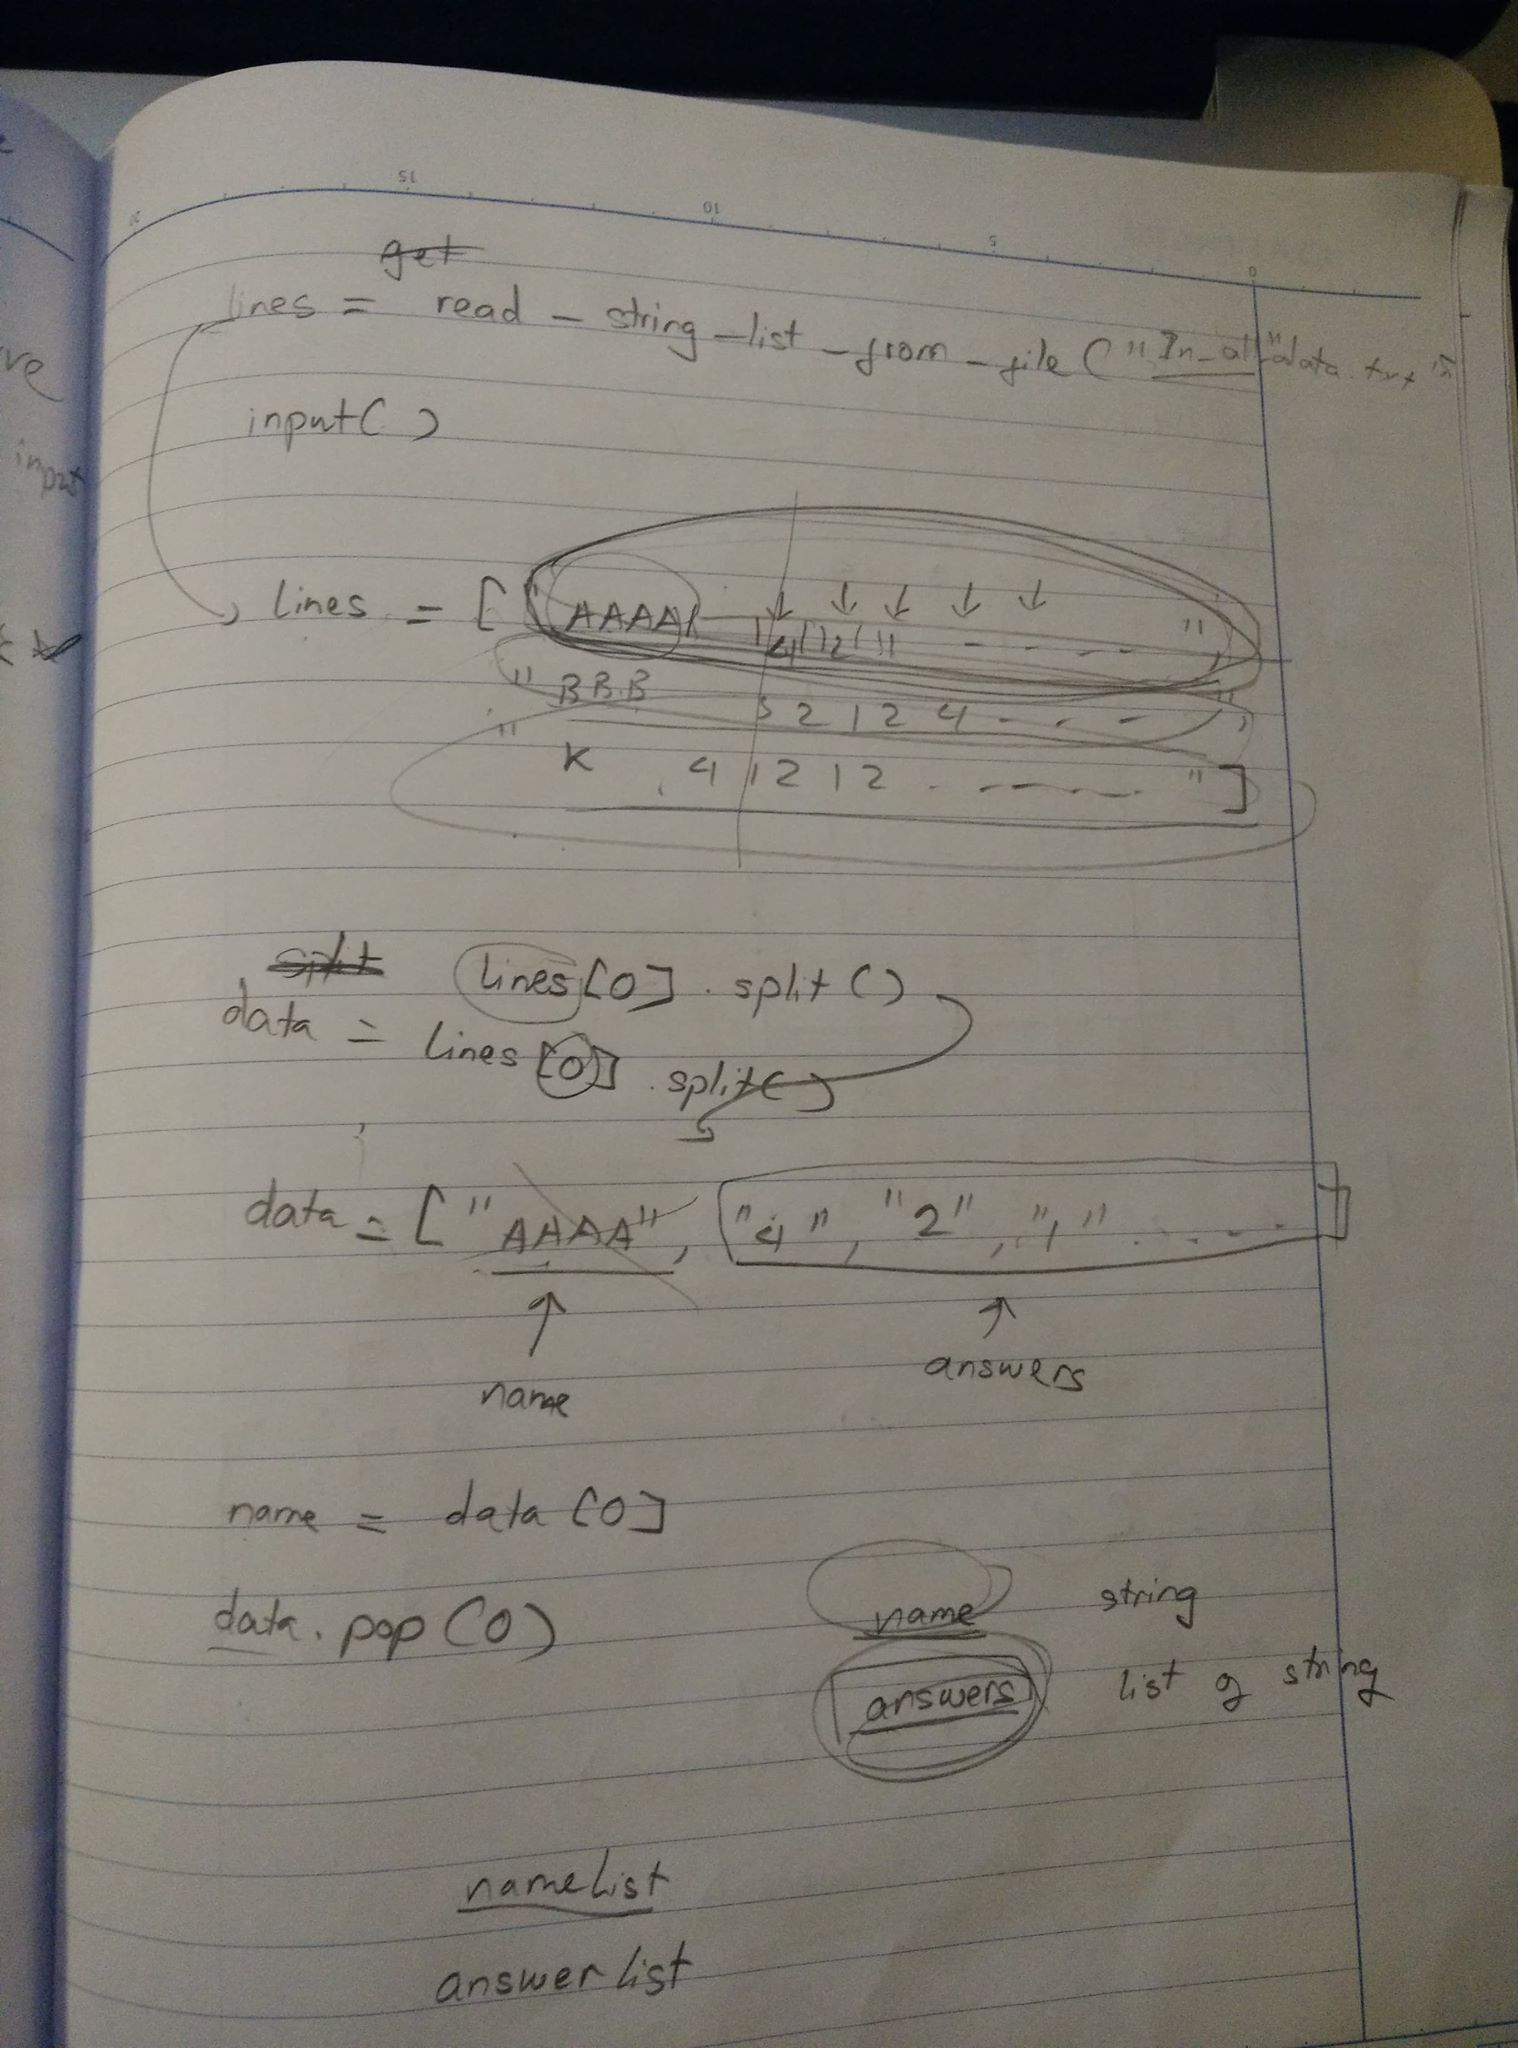 get
lines = read_string_list_from_file("In_al"data.txt"
input()
lines = ["AAAA 4 2 1 - - - - ",
"BBB 3 2 1 2 4 - - - - ",
"K 4 1 2 1 2 . - - - - - "]
split lines[0].split()
data = lines[0].split()
data = ["AAAA", "4", "2", "1" . . . - ]
name answers
name = data[0]
data.pop(0)
name string
answers list of string
nameList
answerList
ve
input
15
10
5
0
20